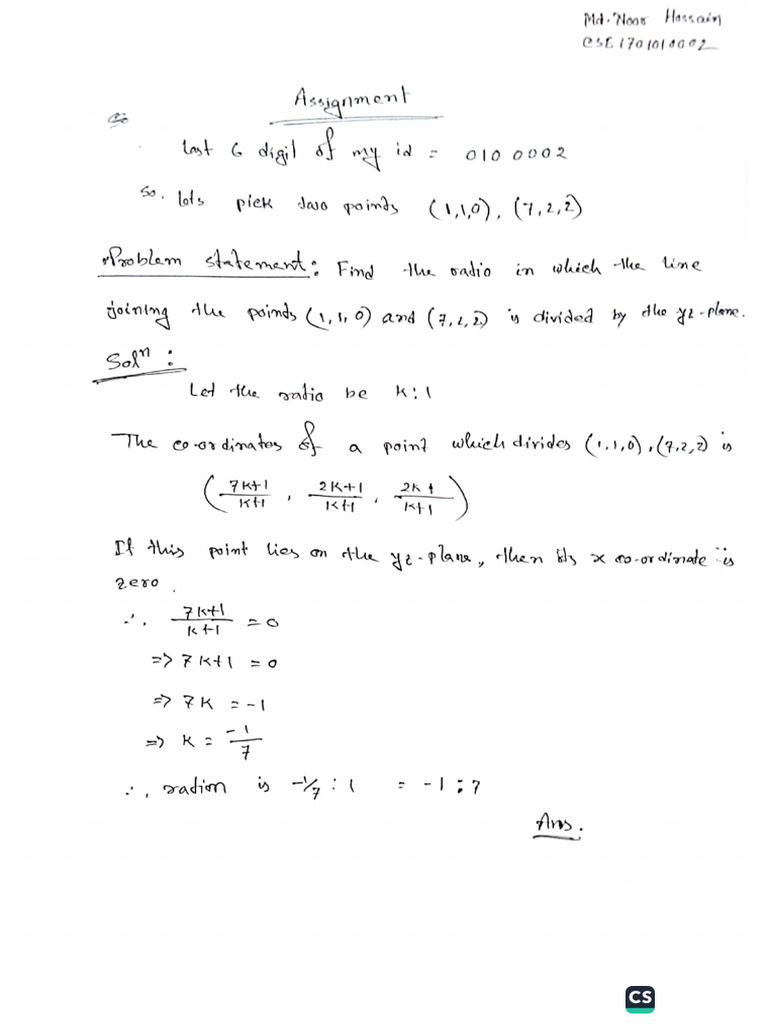 Md. Noor Hossain
CSE1701010002
Assignment
last 6 digit of my id = 010 0002
So, lets pick two points (1,1,0), (7,2,2)
Problem statement: Find the ratio in which the line
joining the points (1,1,0) and (7,2,2) is divided by the yz-plane.
Solⁿ:
Let the ratio be K:1
The co-ordinates of a point which divides (1,1,0), (7,2,2) is
(7K+1/K+1, 2K+1/K+1, 2K+/K+1)
If this point lies on the yz-plane, then its x co-ordinate is
zero.
∴ 7K+1/K+1 = 0
=> 7K+1 = 0
=> 7K = -1
=> K = -1/7
∴, radion is -1/7 : 1 = -1 : 7
Ans.
CS